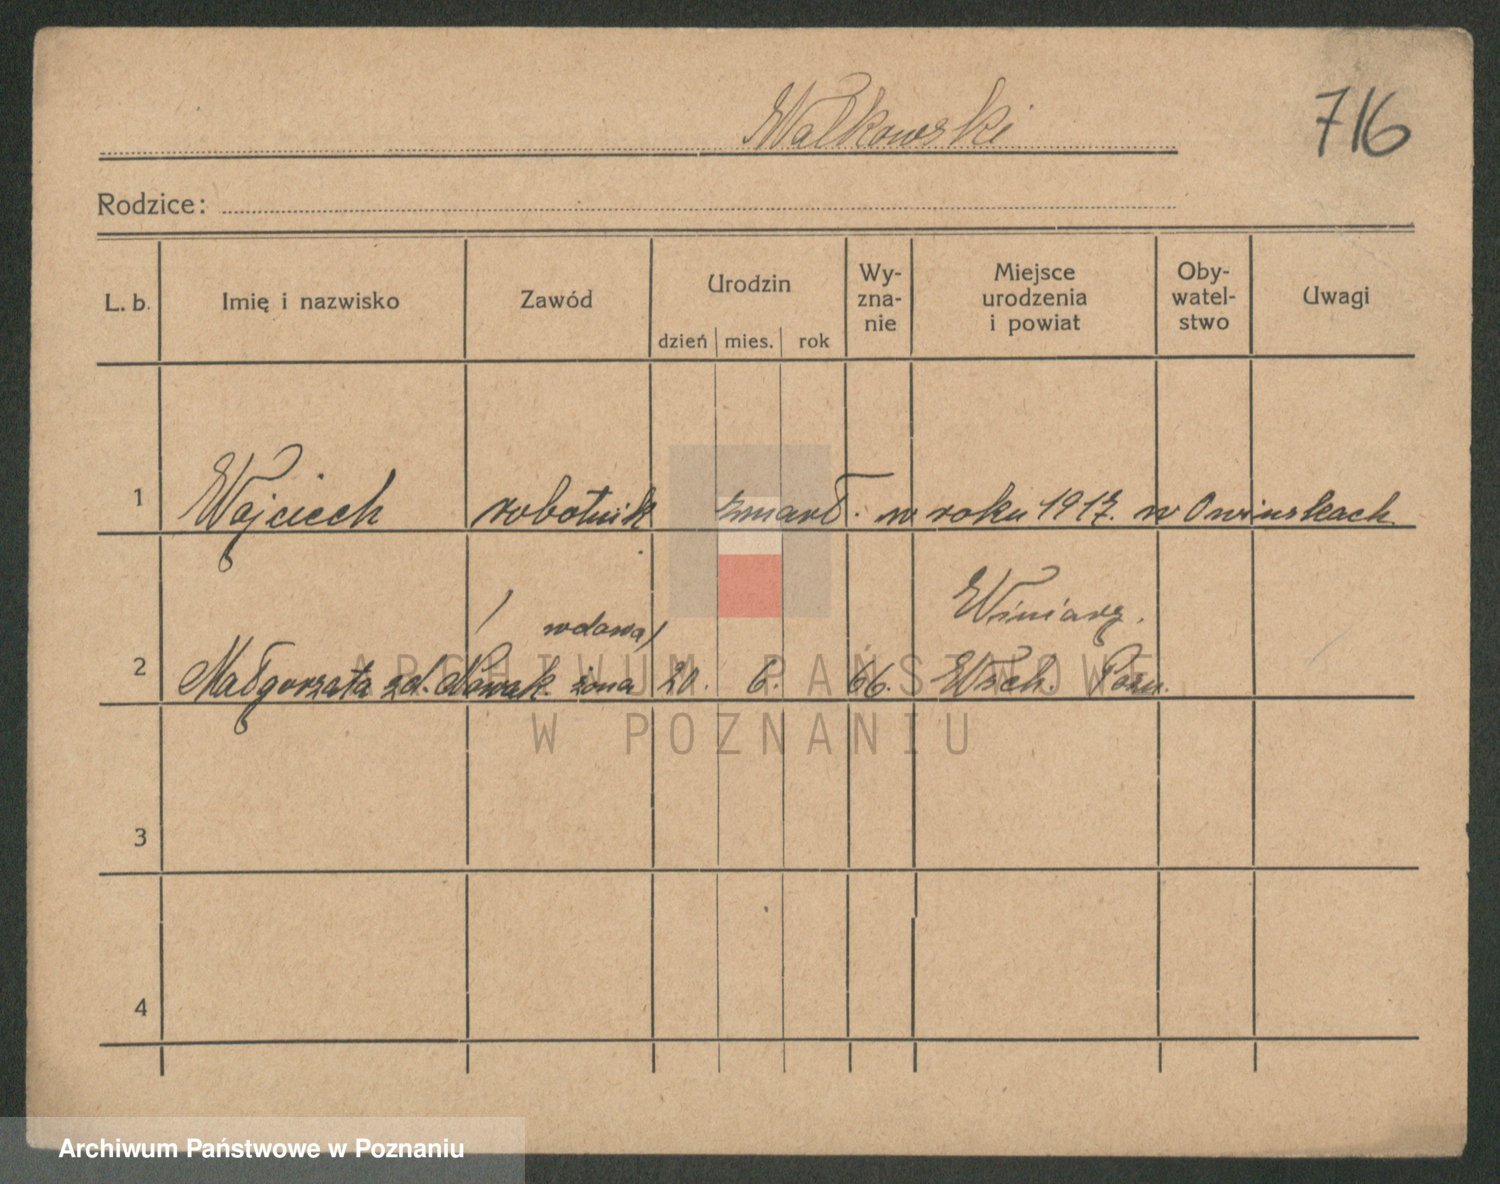 Walkowski
716
Rodzice:
L. b. Imię i nazwisko Zawód Urodzin dzień mies. rok Wy-zna-nie Miejsce urodzenia i powiat Oby-watel-stwo Uwagi
1 Wojciech robotnik zmarł. w roku 1917. w Owinskach
(wdowa) Winiary.
2 Małgorzata zd. Nowak żona 20. 6. 66. Wsch. Pozn.
ARCHIWUM PAŃSTWOWE
W POZNANIU
3
4
Archiwum Państwowe w Poznaniu